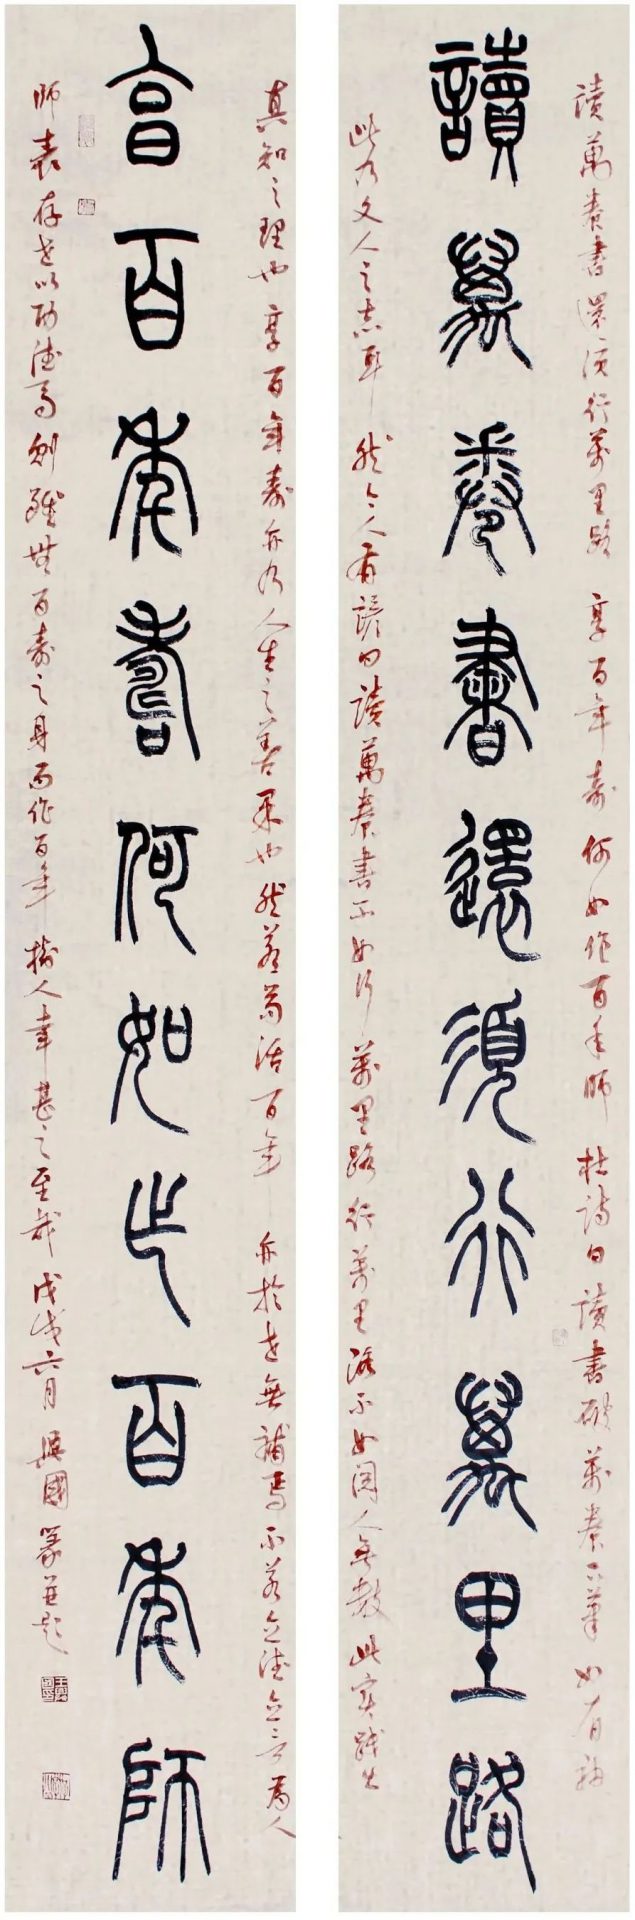 讀萬卷書還須行萬里路 享百年壽何如作百年師 杜詩曰讀書破萬卷下筆如有神
讀萬卷書還須行萬里路
此乃文人之志耳 然今人有諺曰讀萬卷書不如行萬里路行萬里路不如閱人無數 此實踐出
真知之理也享百年壽亦乃人生之善果也然若苟活百年 亦於世無補焉不若立德立言為人
享百年壽何如作百年師
師表存世以功德焉則雖無百壽之身而作百年樹人幸甚之至哉 戊戌六月 興國篆并題